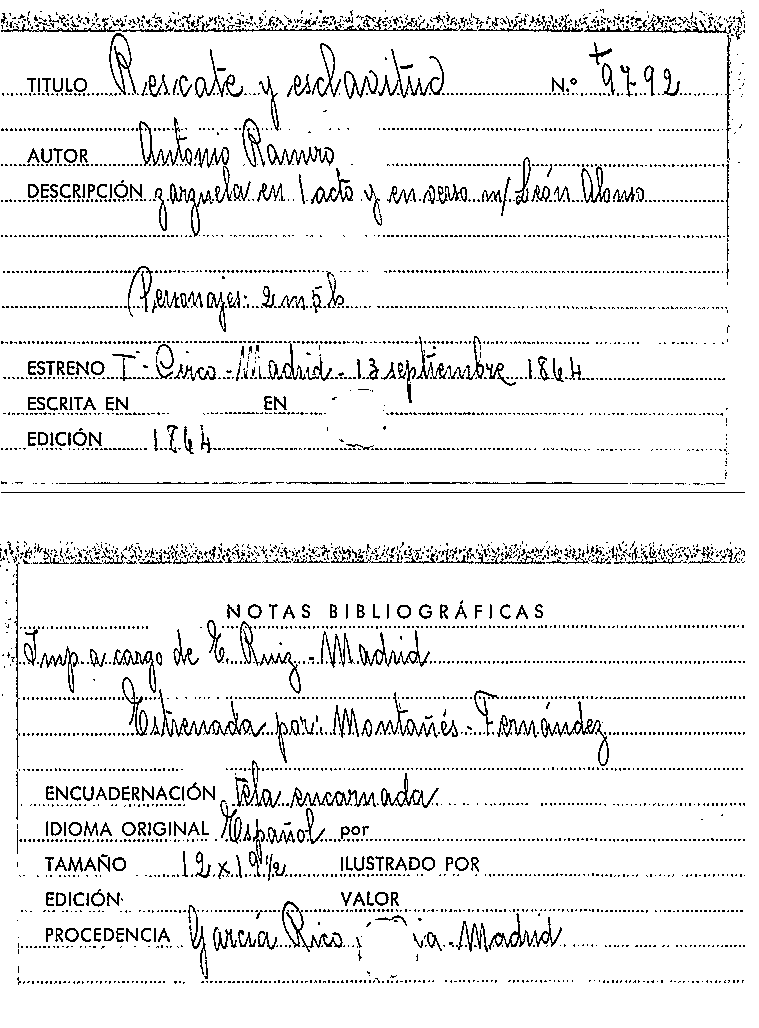 TITULO Rescate y esclavitud N.º 9792
AUTOR Antonio Ramiro
DESCRIPCIÓN zarzuela en 1 acto y en verso m/ León Alonso
Personajes: 2 m 5 h
ESTRENO Tº Circo - Madrid - 13 septiembre 1864
ESCRITA EN EN
EDICIÓN 1864
NOTAS BIBLIOGRÁFICAS
Imp a cargo de E. Ruiz - Madrid
Estrenada por: Montañés - Fernández
ENCUADERNACIÓN tela encarnada
IDIOMA ORIGINAL Español por
TAMAÑO 12 x 19 1/2 ILUSTRADO POR
EDICIÓN VALOR
PROCEDENCIA García Rico - Madrid